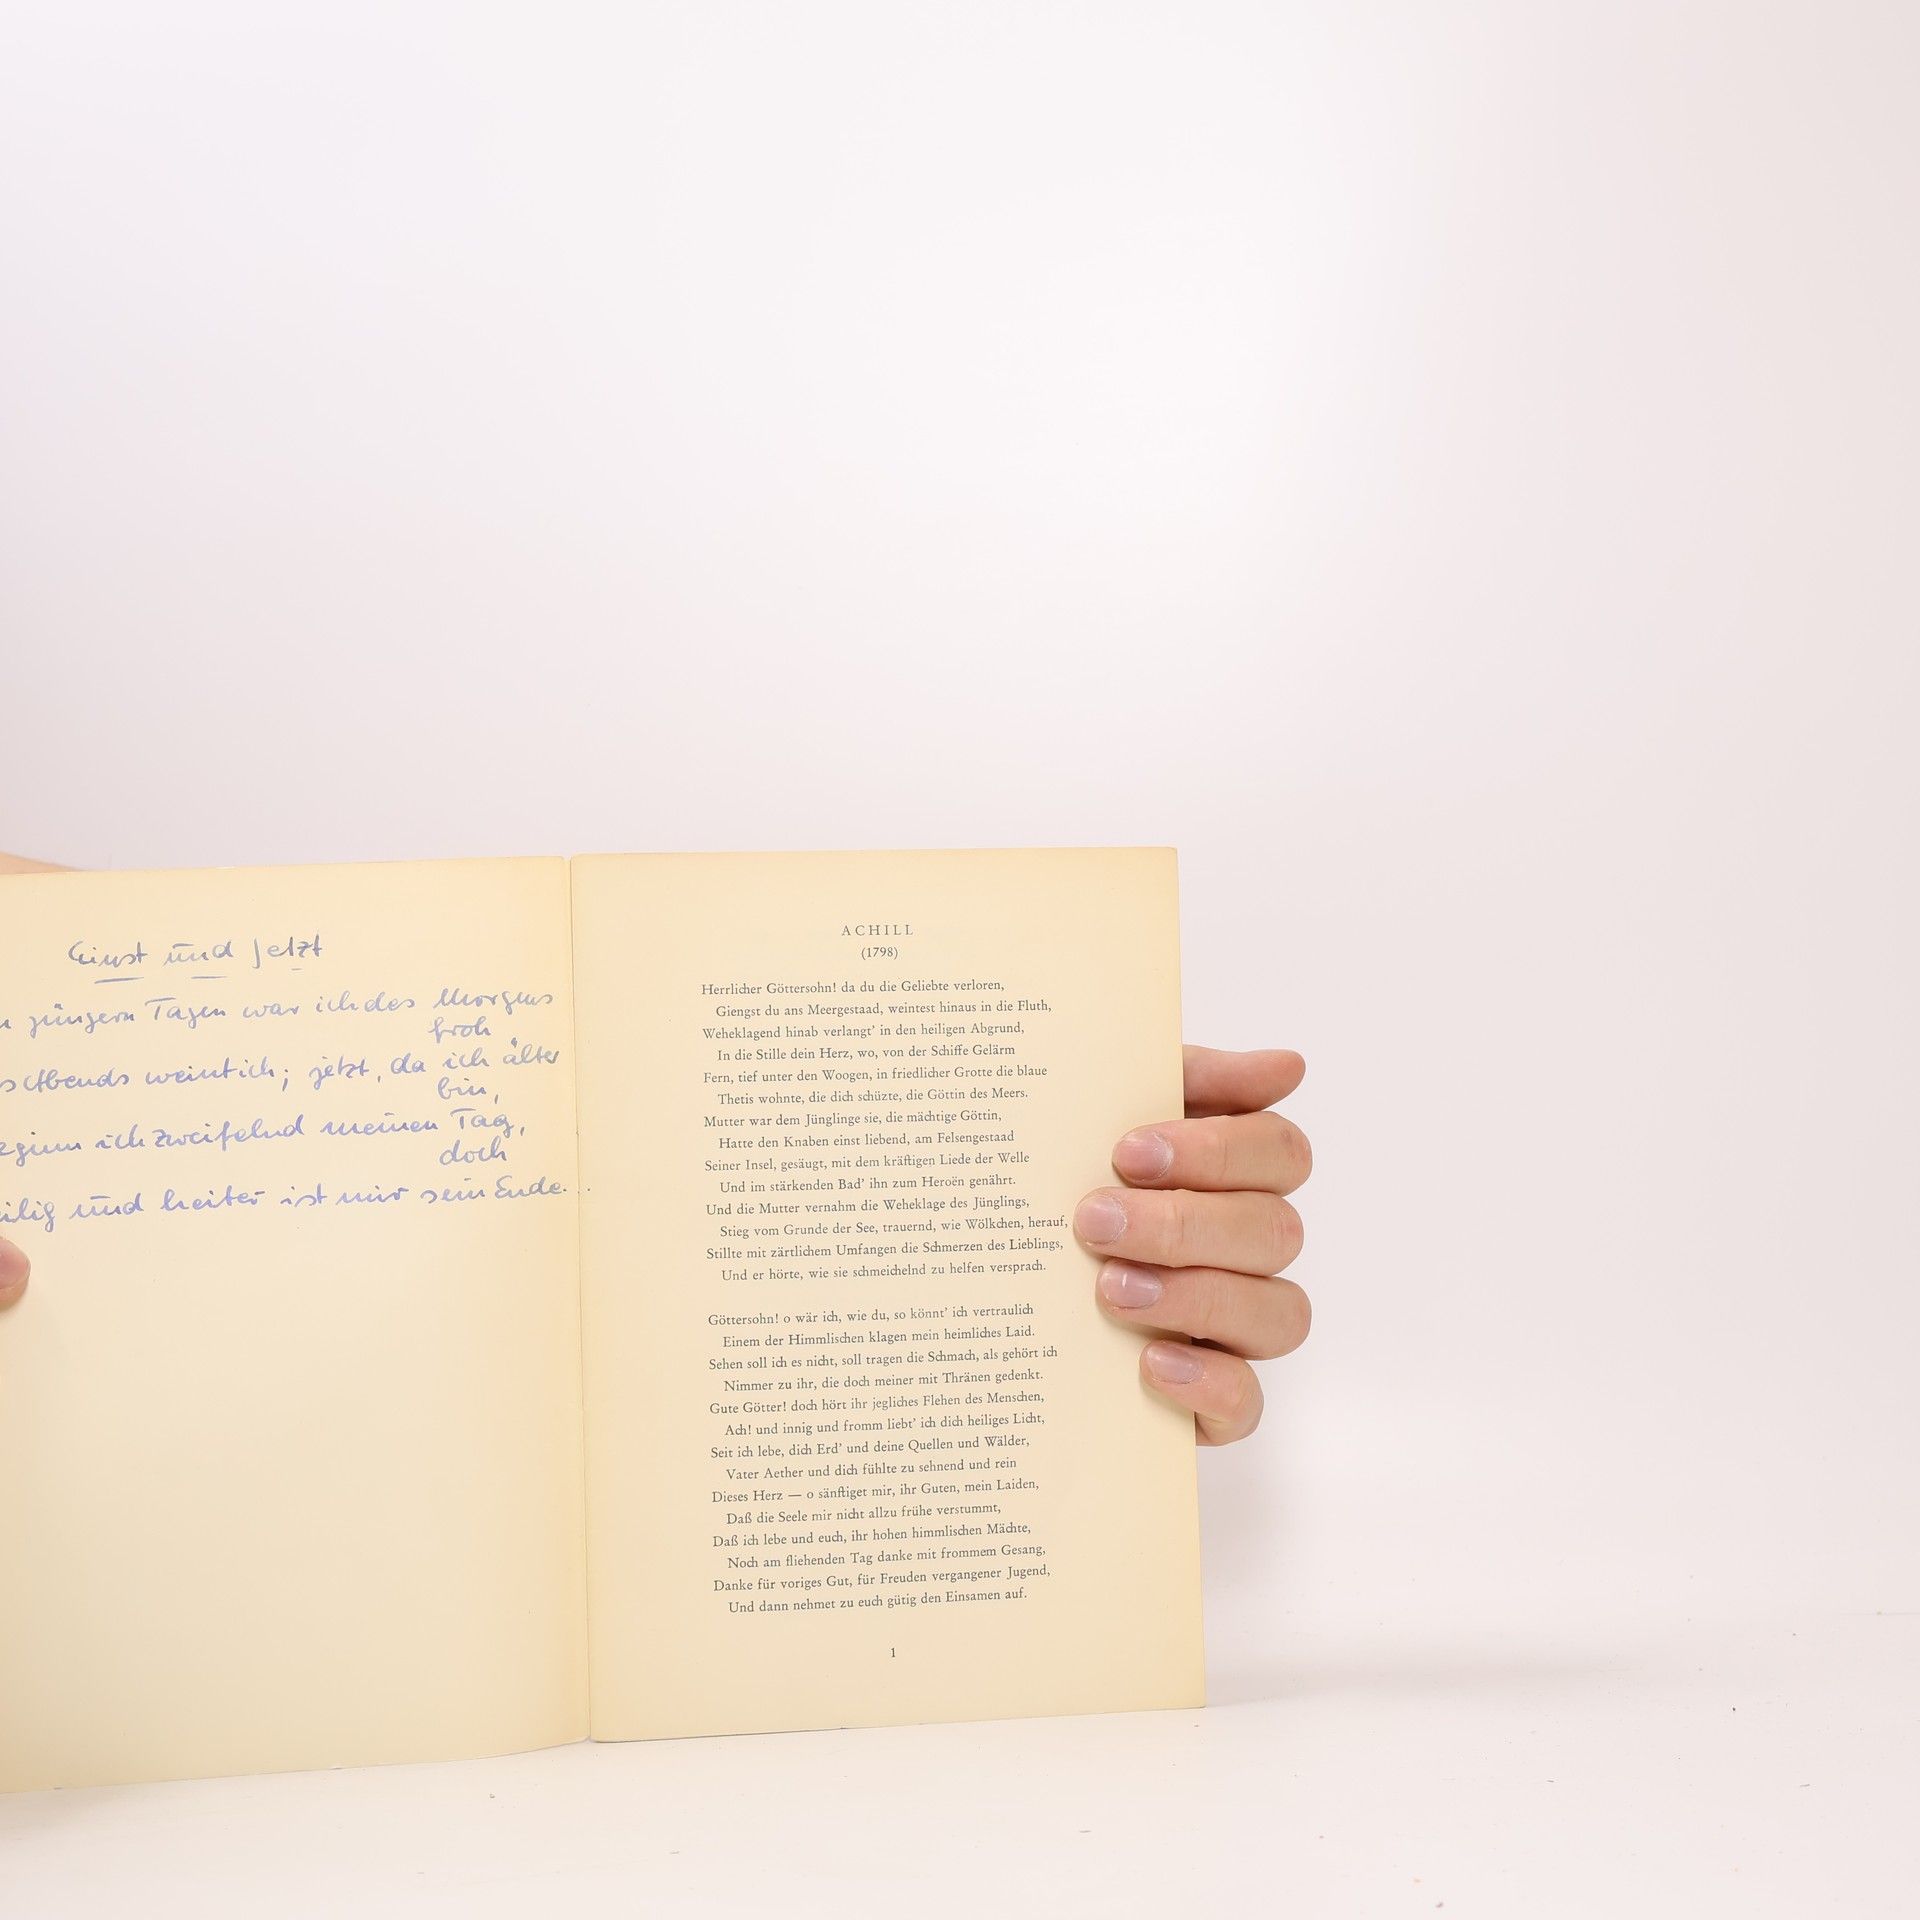 Einst und Jetzt
jüngern Tagen war ich des Morgens
froh
Abends weint ich; jetzt, da ich älter
bin,
ich zweifelnd meinen Tag,
doch
und heiter ist mir sein Ende...
ACHILL
(1798)
Herrlicher Göttersohn! da du die Geliebte verloren,
Giengst du ans Meergestaad, weintest hinaus in die Fluth,
Weheklagend hinab verlangt' in den heiligen Abgrund,
In die Stille dein Herz, wo, von der Schiffe Gelärm
Fern, tief unter den Woogen, in friedlicher Grotte die blaue
Thetis wohnte, die dich schüzte, die Göttin des Meers.
Mutter war dem Jünglinge sie, die mächtige Göttin,
Hatte den Knaben einst liebend, am Felsengestaad
Seiner Insel, gesäugt, mit dem kräftigen Liede der Welle
Und im stärkenden Bad' ihn zum Heroën genährt.
Und die Mutter vernahm die Weheklage des Jünglings,
Stieg vom Grunde der See, trauernd, wie Wölkchen, herauf,
Stillte mit zärtlichem Umfangen die Schmerzen des Lieblings,
Und er hörte, wie sie schmeichelnd zu helfen versprach.
Göttersohn! o wär ich, wie du, so könnt' ich vertraulich
Einem der Himmlischen klagen mein heimliches Laid.
Sehen soll ich es nicht, soll tragen die Schmach, als gehört ich
Nimmer zu ihr, die doch meiner mit Thränen gedenkt.
Gute Götter! doch hört ihr jegliches Flehen des Menschen,
Ach! und innig und fromm liebt' ich dich heiliges Licht,
Seit ich lebe, dich Erd' und deine Quellen und Wälder,
Vater Aether und dich fühlte zu sehnend und rein
Dieses Herz — o sänftiget mir, ihr Guten, mein Laiden,
Daß die Seele mir nicht allzu frühe verstummt,
Daß ich lebe und euch, ihr hohen himmlischen Mächte,
Noch am fliehenden Tag danke mit frommem Gesang,
Danke für voriges Gut, für Freuden vergangener Jugend,
Und dann nehmet zu euch gütig den Einsamen auf.
1